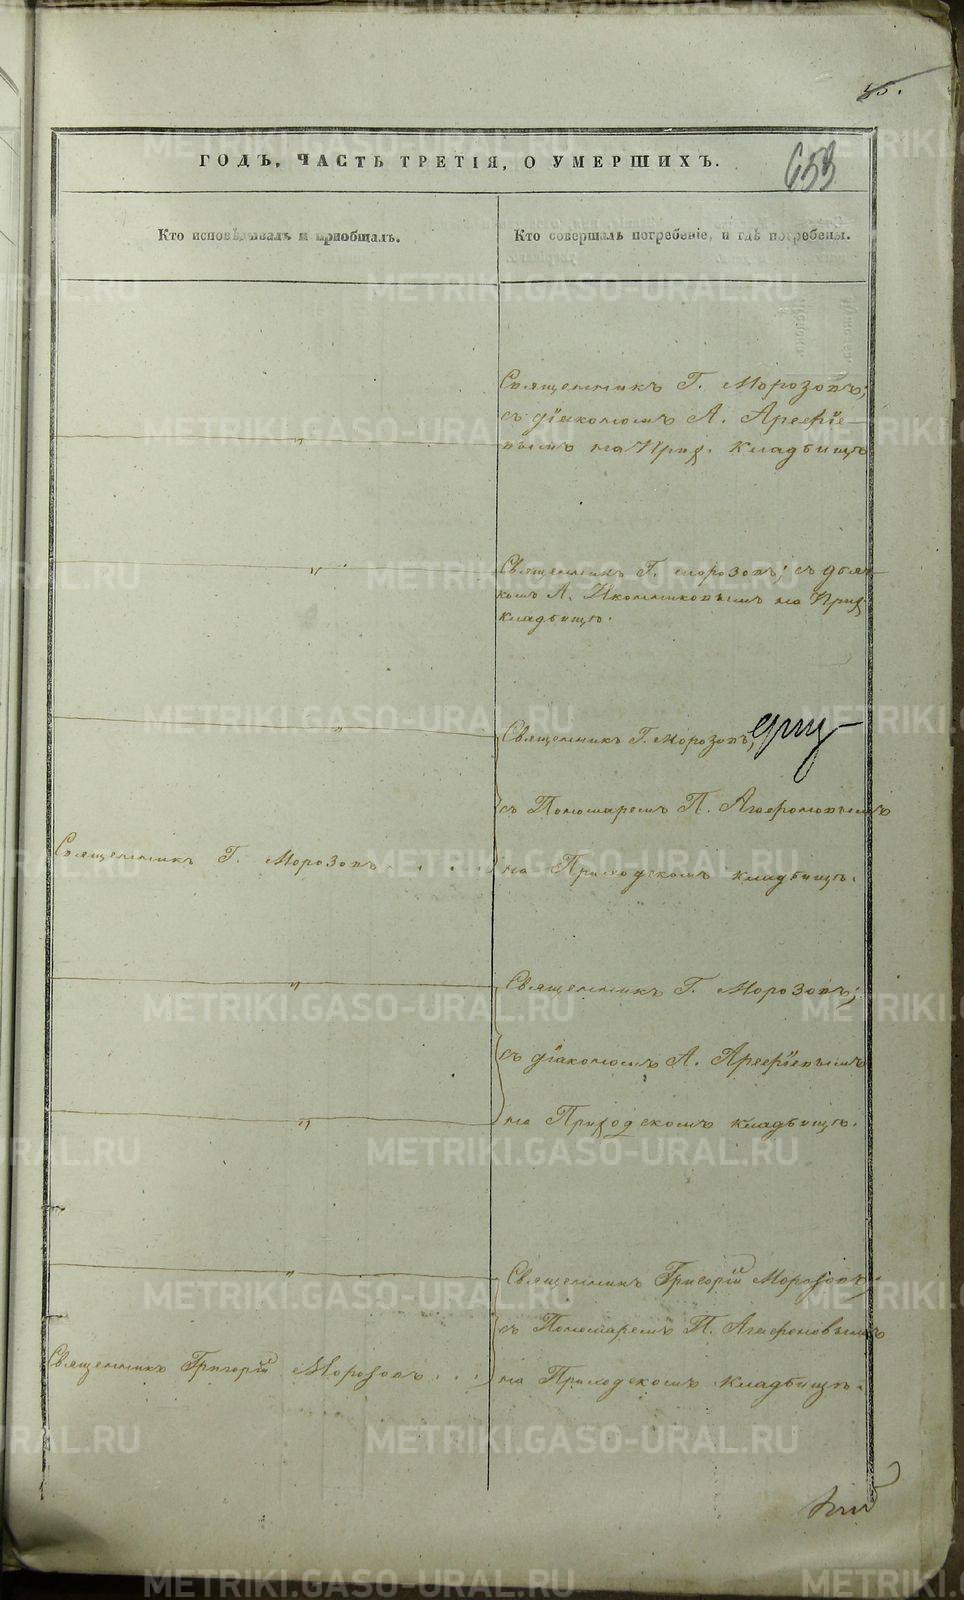 653
ГОДЪ, ЧАСТЬ ТРЕТІЯ, О УМЕРШИХЪ.
Кто исповѣдывалъ и пріобщалъ.
Кто совершалъ погребеніе, и гдѣ погребены.
Священникъ Г. Морозовъ;
съ діакономъ А. Арефіе-
вымъ на Прих. кладбищѣ
Священникъ Г. Морозовъ; съ дья-
комъ А. Иконниковымъ на Прих
кладбищѣ.
Священникъ Г. Морозовъ,
съ Пономаремъ П. Агафоновымъ
Священникъ Г. Морозовъ . . . .
на Приходскомъ кладбищѣ.
Священникъ Г. Морозовъ;
съ діакономъ А. Арефіевымъ
на Приходскомъ кладбищѣ.
Священникъ Григорій Морозовъ
съ Пономаремъ П. Агафоновымъ
Священникъ Григорій Морозовъ . . .
на Приходскомъ кладбищѣ.
METRIKI.GASO-URAL.RU